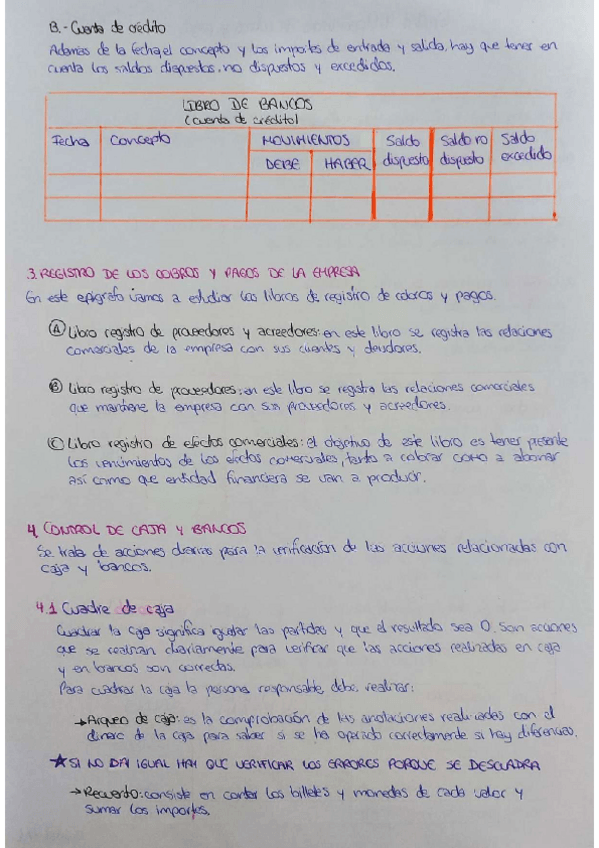 B.- Cuenta de crédito
Además de la fecha, el concepto y los importes de entrada y salida, hay que tener en
cuenta los saldos dispuestos, no dispuestos y excedidos.
LIBRO DE BANCOS
(cuenta de crédito)
Fecha Concepto MOVIMIENTOS Saldo dispuesto Saldo no dispuesto Saldo excedido
DEBE HABER
3. REGISTRO DE LOS COBROS Y PAGOS DE LA EMPRESA
En este epígrafo vamos a estudiar los libros de registro de cobros y pagos.
A Libro registro de proveedores y acreedores: en este libro se registra las relaciones
comerciales de la empresa con sus clientes y deudores.
B Libro registro de proveedores: en este libro se registra las relaciones comerciales
que mantiene la empresa con sus proveedores y acreedores.
C Libro registro de efectos comerciales: el objetivo de este libro es tener presente
los vencimientos de los efectos comerciales, tanto a cobrar como a abonar
así como que entidad financiera se van a producir.
4. CONTROL DE CAJA Y BANCOS
Se trata de acciones diarias para la verificación de las acciones relacionadas con
caja y bancos.
4.1 Cuadre de caja
Cuadrar la caja significa igualar las partidas y que el resultado sea 0. Son acciones
que se realizan diariamente para verificar que las acciones realizadas en caja
y en bancos son correctas.
Para cuadrar la caja la persona responsable, debe realizar:
→ Arqueo de caja: es la comprobación de las anotaciones realizadas con el
dinero de la caja para saber si se ha operado correctamente si hay diferencias.
★ SI NO DA IGUAL HAY QUE VERIFICAR LOS ERRORES PORQUE SE DESCUADRA
→ Recuento: consiste en contar los billetes y monedas de cada valor y
sumar los importes.